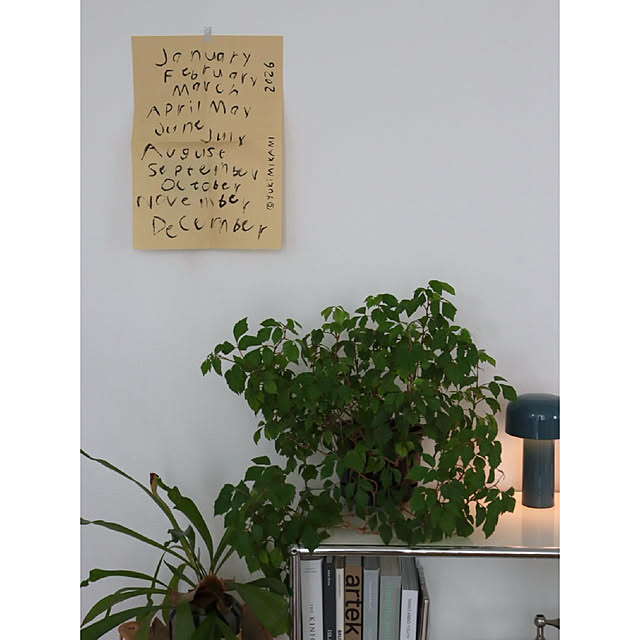 January
February
March
April May
June
July
August
September
October
November
December
2026
©YUKI MIKAMI
THE KINF
artek